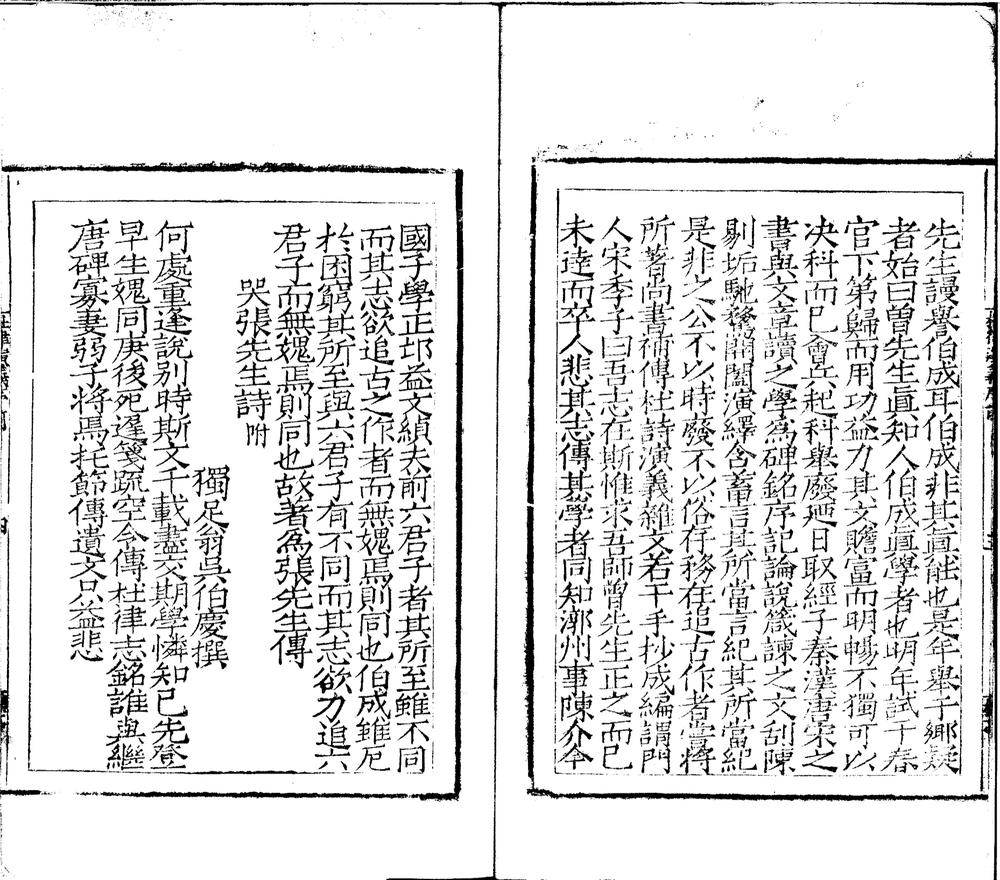 先生謾譽伯成耳伯成非其眞能也是年舉子鄉疑
者始曰曽先生眞知人伯成眞學者也明年試于春
官下第歸而用功益力其文贍富而明暢不獨可以
决科而已會兵起科舉廢廼日取經子秦漢唐宋之
書與文章讀之學爲碑銘序記論說箴諫之文刮陳
剔垢馳騖開闔演繹含畜言其所當言紀其所當紀
是非之公不以時廢不以俗存務在追古作者嘗將
所著尚書補傳杜詩演義雜文若干手抄成編謂門
人宋季子曰吾志在斯惟求吾師曽先生正之而已
未達而卒人悲其志傳其學者同知漷州事陳介今
國子學正邛益文縝夫前六君子者其所至雖不同
而其志欲追古之作者而無媿焉則同也伯成雖戹
於困窮其所至與六君子有不同而其志欲力追六
君子而無媿焉則同也故著爲張先生傳
哭張先生詩附
獨足翁吳伯慶撰
何處重逢說别時斯文千載盡交期學憐知已先登
早生媿同庚後死遲箋疏空令傳杜律志銘誰與繼
唐碑寡妻弱子將焉托節傳遺文只益悲